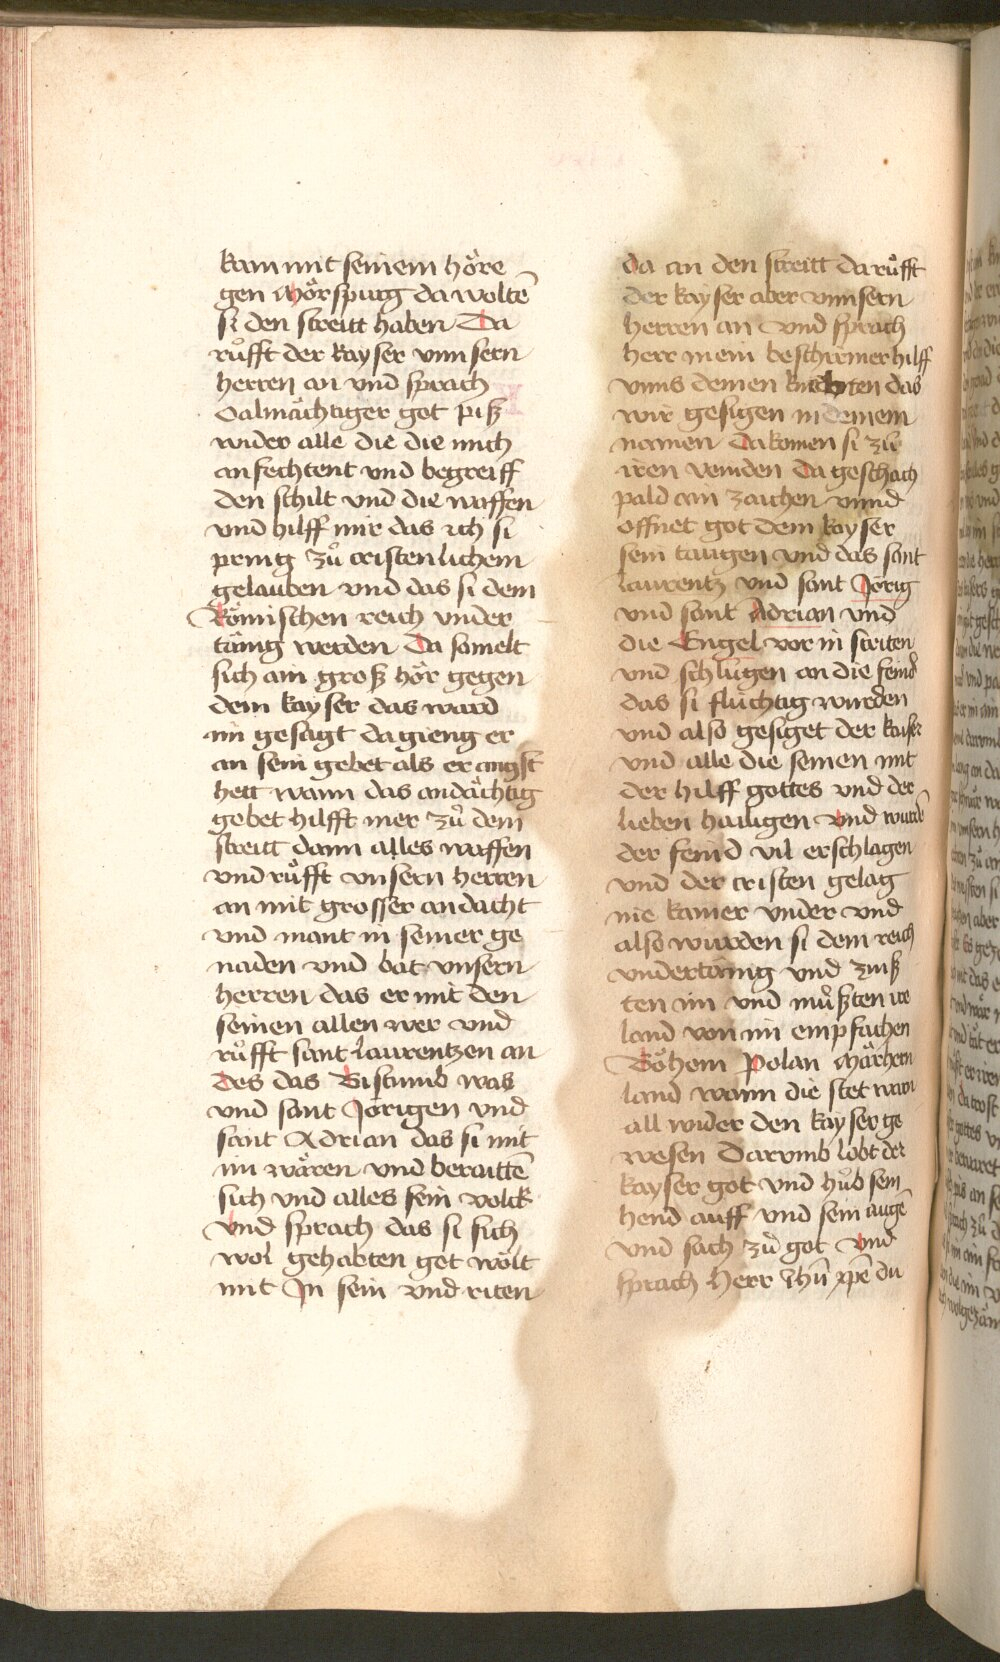 kam mit seinem höre
gen Mörspurg da woltē
si den streitt haben Da
růfft der kayser vnnsern
herren an vnd sprach
O almächtiger got piß
wider alle die die mich
anfechtent vnd begreiff
den schilt vnd die waffen
vnd hilff mir das ich si
pring zů cristenlichem
gelauben vnd das si dem
Römischen reich vnder
tänig werden Da samelt
sich ain groß hör gegen
dem kayser das ward
im gesagt da gieng er
an sein gebet als er angst
hett wann das andächtig
gebet hilfft mer zů dem
streitt dann alles waffen
vnd růfft vnsern herren
an mit grosser andacht
vnd mant in seiner ge
naden vnd bat vnsern
herren das er mit den
seinen allen wer vnd
růfft sant Laurentzen an
des das Bistumb was
vnd sant Jörigen vnd
sant Adrian das si mit
im wären vnd beraittē
sich vnd alles sein volck
vnd sprach das si sich
wol gehabten got wölt
mit In sein vnd riten
da an den streitt da růfft
der kayser aber vnnsern
herren an vnd sprach
herr mein beschirmer hilff
vnns deinen knechten das
wir gesigen in deinem
namen Da komen si zů
iren veinden Da geschach
pald ain zaichen vnnd
offnet got dem kayser
sein taugen vnd das sant
Laurentz vnd sant Jörig
vnd sant Adrian vnd
die Engel vor in striten
vnd schlůgen an die feind
das si flüchtig wurden
vnd also gesiget der kaiser
vnd alle die seinen mit
der hilff gottes vnd der
lieben hailigen vnd wurdē
der feind vil erschlagen
vnd der cristen gelag
nie kainer vnder vnd
also wurden si dem reich
vndertänig vnd zinß
ten im vnd můßten ire
land von im empfachen
Böhem Polan Märhern
land wann die stet warn
all wider den kayser ge
wesen Darumb lobt der
kayser got vnd hůb sein
hend auff vnd sein augē
vnd sach zů got vnd
sprach Herr ihū xp̄e du